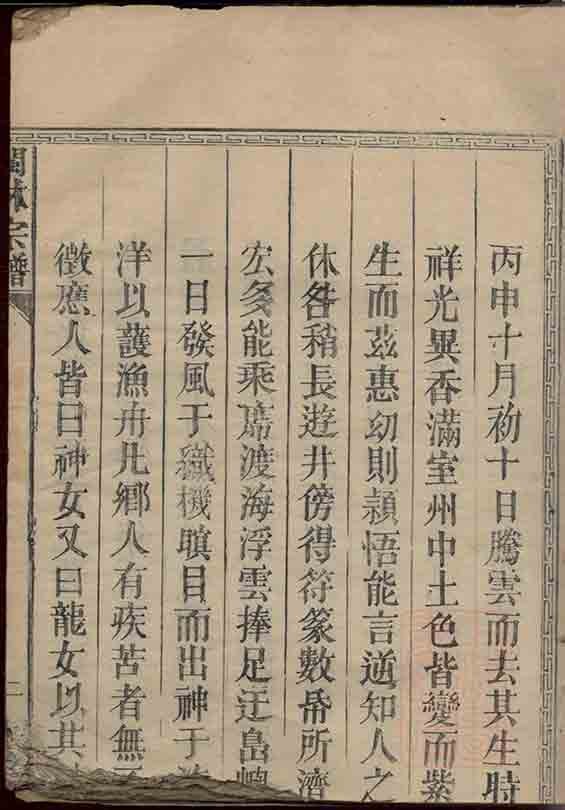 丙申十月初十日騰雲而去其生時
祥光異香滿室州中土色皆變而紫
生而茲惠幼則穎悟能言逆知人之
休咎稍長遊井傍得符篆數帋所濟
宏多能乘席渡海浮雲捧足迂島嶼
一日發風于織機瞋目而出神于
洋以護漁舟凡鄉人有疾苦者無
徵應人皆曰神女又曰龍女以其
林宗譜
二